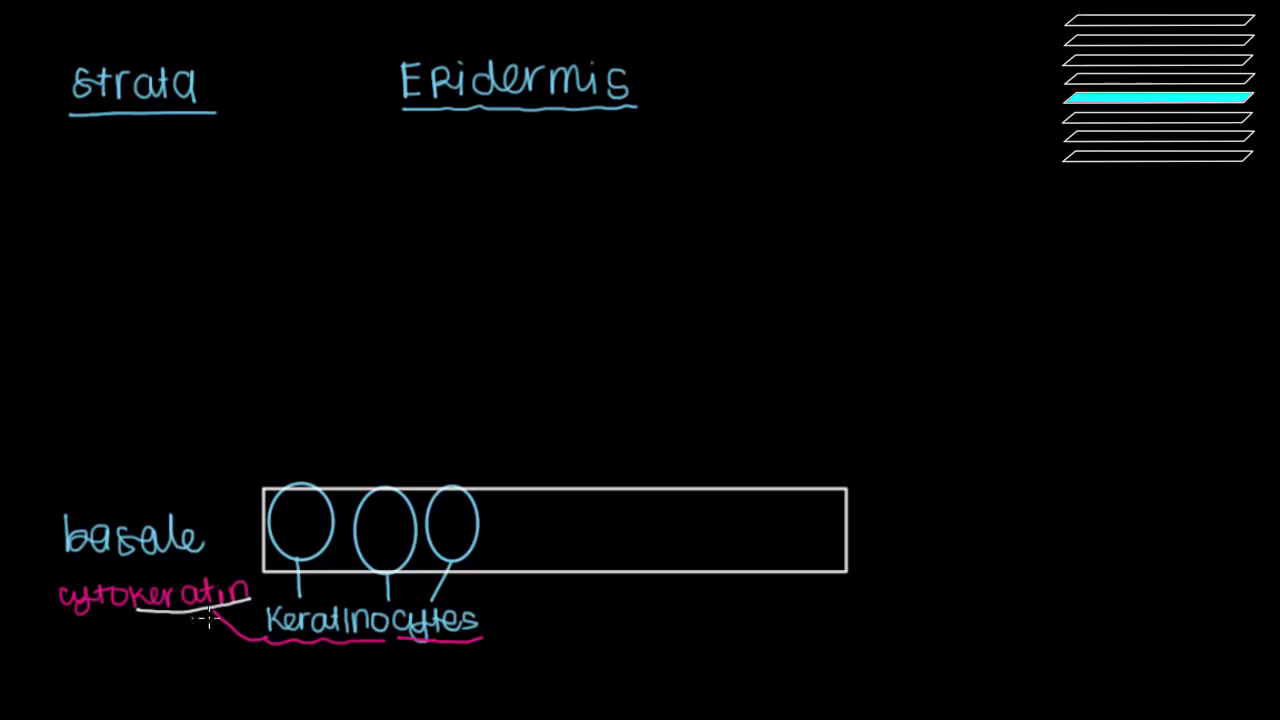 strata
Epidermis
basale
cytokeratin
Keratinocytes